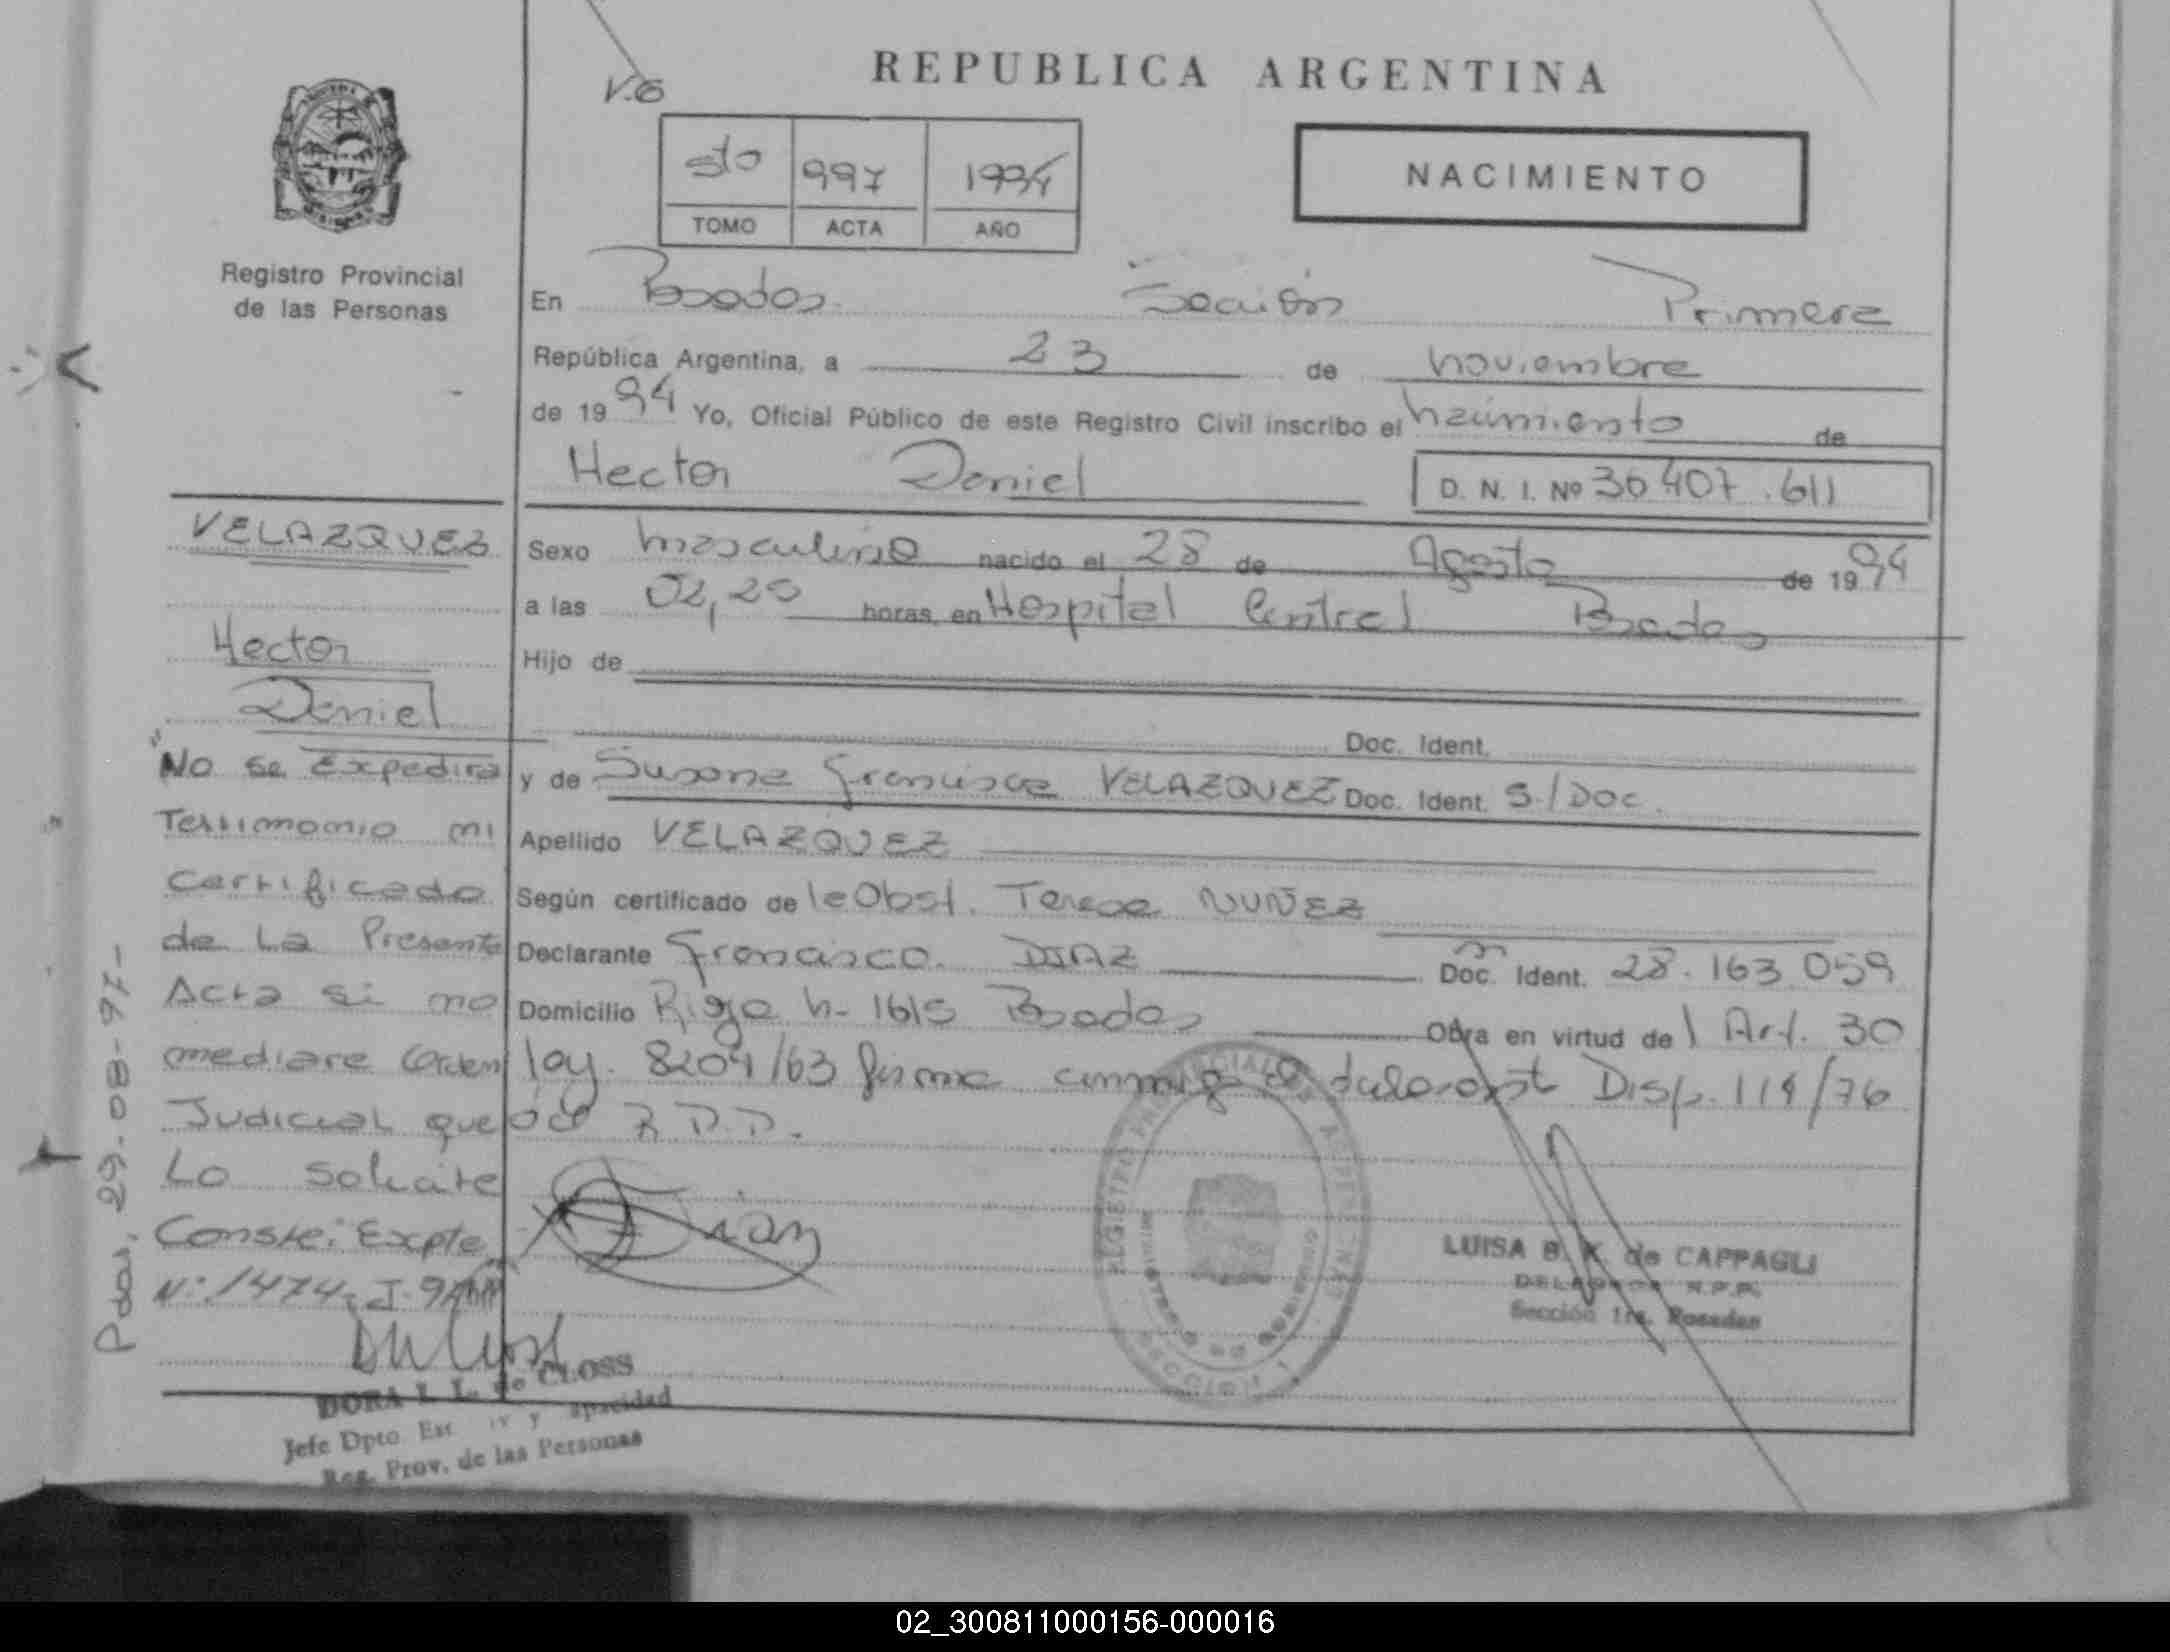 REPUBLICA ARGENTINA
V.6
5to 997 1994
TOMO ACTA AÑO
NACIMIENTO
Registro Provincial
de las Personas
En Posadas Sección Primera
República Argentina, a 23 de noviembre
de 1994 Yo, Oficial Público de este Registro Civil inscribo el nacimiento de
Hector Daniel D. N. I. Nº 36407.611
Sexo masculino nacido el 28 de Agosto de 1994
a las 02,20 horas, en Hospital Central Posadas
Hijo de
Doc. Ident.
y de Susana Francisca VELAZQUEZ Doc. Ident. S/Doc.
Apellido VELAZQUEZ
Según certificado de la Obst. Teresa NUÑEZ
Declarante Francisco DIAZ Doc. Ident. 28.163.059
Domicilio Rioja n- 1615 Posadas Obra en virtud de l Art. 30
ley 8204/63 firma conmigo el declarant Disp. 114/76
Diaz
LUISA B. K. de CAPPAGLI
DELEGADA R.P.P.
Sección 1ra. Posadas
VELAZQUEZ
Hector
Daniel
"No se Expedira
Testimonio ni
Certificado
de La Presente
Acta si no
mediare Orden
Judicial que
Lo solicite
Conste: Expte
Nº: 1474-J-97
Pdas, 29-08-97-
DORA L. L. de CLOSS
Jefe Dpto Est. y Capacidad
Reg. Prov. de las Personas
02_300811000156-000016